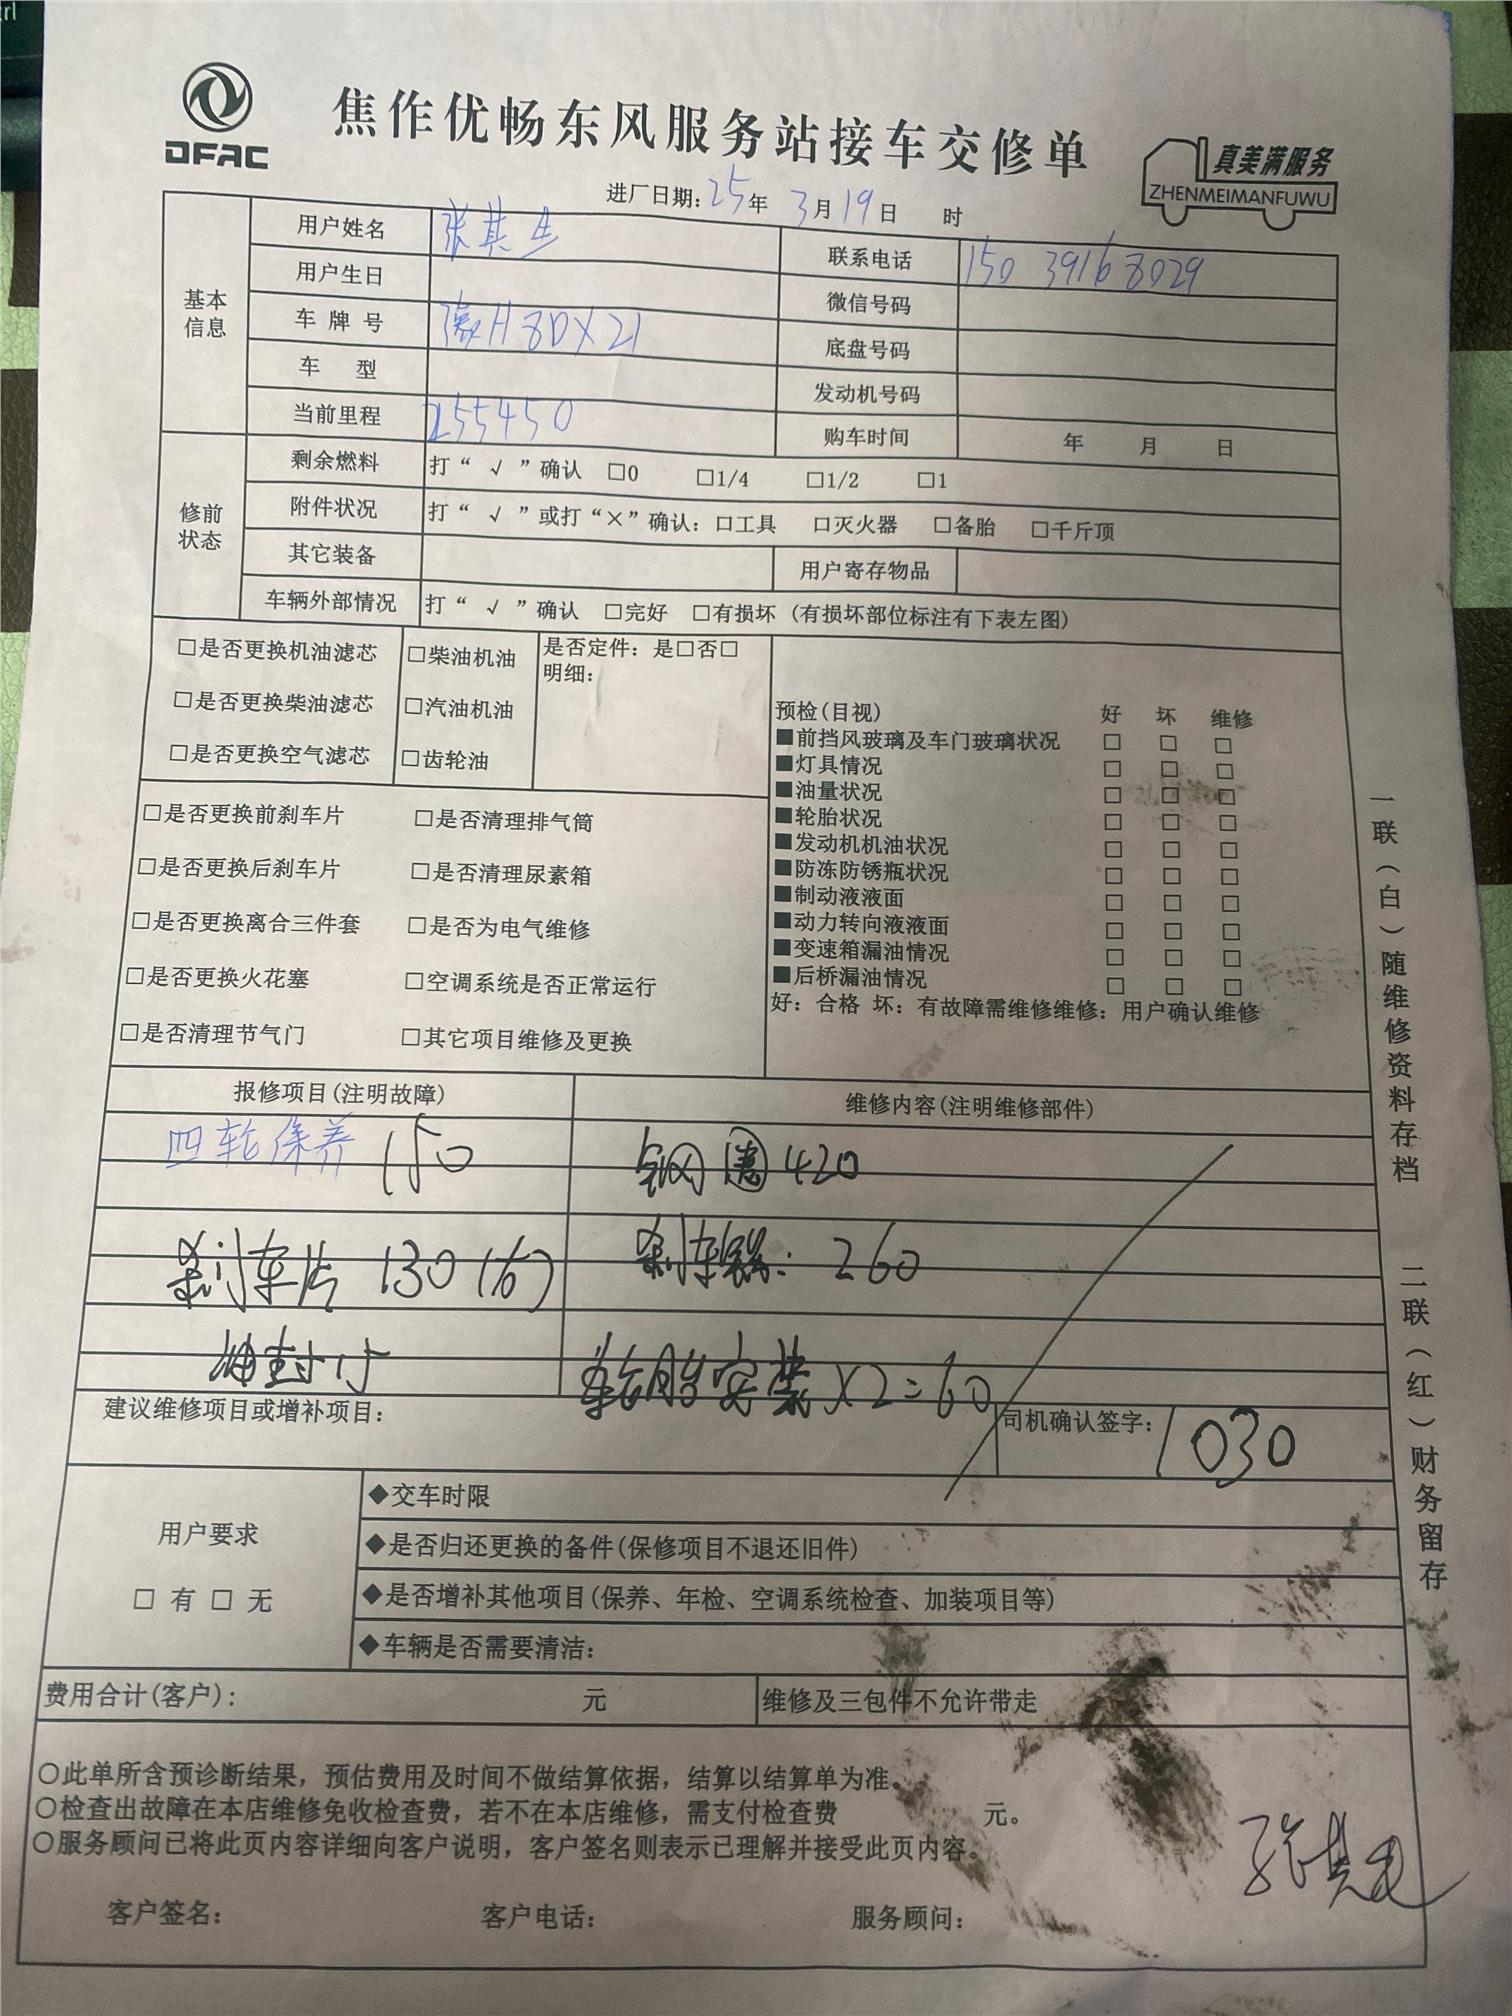 DFAC
焦作优畅东风服务站接车交修单
真美满服务
ZHENMEIMANFUWU
进厂日期: 25年 3月19日 时
基本信息
用户姓名 张其生 联系电话 150 3916 8029
用户生日 微信号码
车牌号 豫H8DX21 底盘号码
车型 发动机号码
当前里程 255450 购车时间 年 月 日
修前状态
剩余燃料 打“√”确认 □0 □1/4 □1/2 □1
附件状况 打“√”或打“×”确认: □工具 □灭火器 □备胎 □千斤顶
其它装备 用户寄存物品
车辆外部情况 打“√”确认 □完好 □有损坏 (有损坏部位标注有下表左图)
□是否更换机油滤芯 □柴油机油 是否定件: 是□否□
明细:
□是否更换柴油滤芯 □汽油机油
□是否更换空气滤芯 □齿轮油
□是否更换前刹车片 □是否清理排气筒
□是否更换后刹车片 □是否清理尿素箱
□是否更换离合三件套 □是否为电气维修
□是否更换火花塞 □空调系统是否正常运行
□是否清理节气门 □其它项目维修及更换
预检(目视) 好 坏 维修
■前挡风玻璃及车门玻璃状况 □ □ □
■灯具情况 □ □ □
■油量状况 □ □ □
■轮胎状况 □ □ □
■发动机机油状况 □ □ □
■防冻防锈瓶状况 □ □ □
■制动液液面 □ □ □
■动力转向液液面 □ □ □
■变速箱漏油情况 □ □ □
■后桥漏油情况 □ □ □
好: 合格 坏: 有故障需维修维修: 用户确认维修
报修项目(注明故障) 维修内容(注明维修部件)
四轮保养 150 钢圈420
刹车片 130 刹车 : 260
油封 轮胎安装×2=60
建议维修项目或增补项目: 司机确认签字: 1030
用户要求
□ 有 □ 无
◆交车时限
◆是否归还更换的备件(保修项目不退还旧件)
◆是否增补其他项目(保养、年检、空调系统检查、加装项目等)
◆车辆是否需要清洁:
费用合计(客户): 元 维修及三包件不允许带走
○此单所含预诊断结果，预估费用及时间不做结算依据，结算以结算单为准。
○检查出故障在本店维修免收检查费，若不在本店维修，需支付检查费 元。
○服务顾问已将此页内容详细向客户说明，客户签名则表示已理解并接受此页内容。
客户签名: 客户电话: 服务顾问:
一联(白)随维修资料存档 二联(红)财务留存